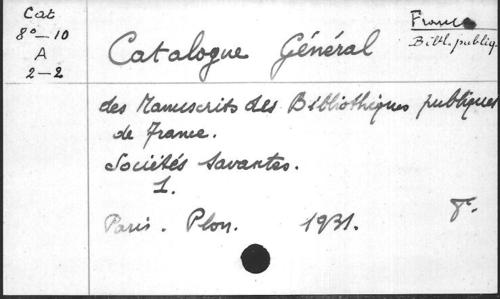 Cat
8°-10
A
2-2
France
Bibl. publiq.
Catalogue Général
des Manuscrits des Bibliothèques publiques
de France.
Sociétés Savantes.
1.
Paris. Plon. 1931. 8°.